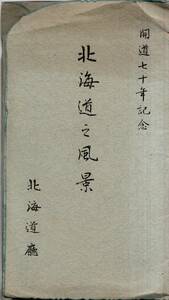 開道七十年記念
北海道之風景
北海道廳